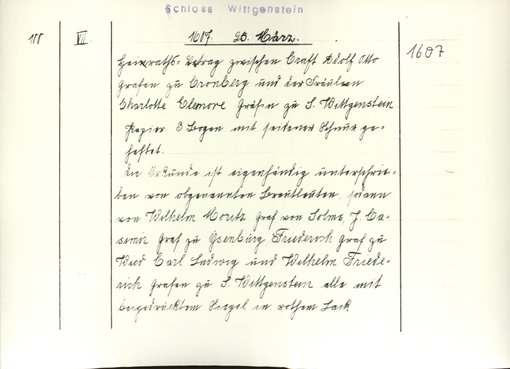 Schloss Wittgenstein
111 VII. 1607. 20. März. 1607
Heiraths-Vertrag zwischen Craft Adolf Otto
Grafen zu Cronberg und der Fräulein
Charlotte Eleonore Gräfin zu S. Wittgenstein
Papier 3 Bogen mit seidener Schnur ge-
heftet.
Die Urkunde ist eigenhändig unterschrie-
ben von obgenannten Brautleuten, sodann
von Wilhelm Moritz Graf von Solms, J. Ca-
simir Graf zu Ysenburg, Friederich Graf zu
Wied Carl Ludwig und Wilhelm Friede-
rich Grafen zu S. Wittgenstein alle mit
beigedrücktem Siegel in rothem Lack